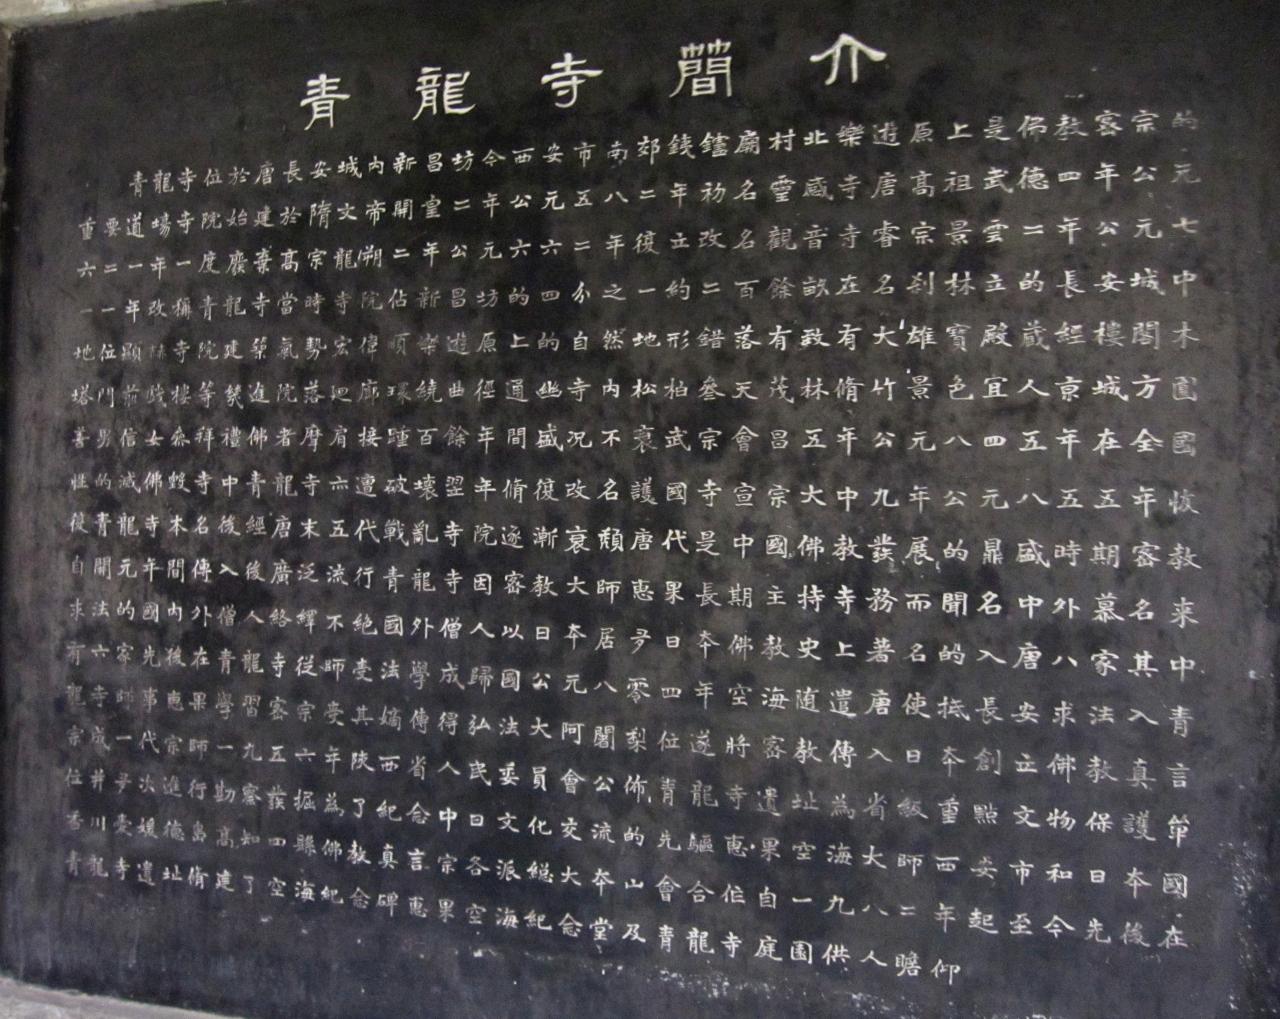 青龍寺簡介
青龍寺位於唐長安城内新昌坊今西安市南郊鐵鑪廟村北樂遊原上是佛教密宗的
重要道場寺院始建於隋文帝開皇二年公元五八二年初名靈感寺唐高祖武德四年公元
六二一年一度廢棄高宗龍朔二年公元六六二年復立改名觀音寺睿宗景雲二年公元七
一一年改稱青龍寺當時寺院佔新昌坊的四分之一約二百餘畝在名刹林立的長安城中
地位顯赫寺院建築氣勢宏偉順樂遊原上的自然地形錯落有致有大雄寶殿藏經樓閣木
塔門前戲樓等幾進院落迴廊環繞曲徑通幽寺内松柏參天茂林脩竹景色宜人京城方圓
善男信女參拜禮佛者摩肩接踵百餘年間盛況不衰武宗會昌五年公元八四五年在全國
性的滅佛毀寺中青龍寺亦遭破壞翌年脩復改名護國寺宣宗大中九年公元八五五年恢
復青龍寺本名後經唐末五代戰亂寺院逐漸衰頹唐代是中國佛教發展的鼎盛時期密教
自開元年間傳入後廣泛流行青龍寺因密教大師惠果長期主持寺務而聞名中外慕名来
求法的國内外僧人絡繹不絕國外僧人以日本居多日本佛教史上著名的入唐八家其中
有六家先後在青龍寺從師受法學成歸國公元八零四年空海随遣唐使抵長安求法入青
龍寺師事惠果學習密宗受其嫡傳得弘法大阿闍梨位遂將密教傳入日本創立佛教真言
宗成一代宗師一九五六年陝西省人民委員會公佈青龍寺遺址為省級重點文物保護單
位并多次進行勘察發掘為了紀念中日文化交流的先驅惠果空海大師西安市和日本國
香川愛媛德島高知四縣佛教真言宗各派總大本山會合作自一九八二年起至今先後在
青龍寺遺址脩建了空海紀念碑惠果空海紀念堂及青龍寺庭園供人瞻仰